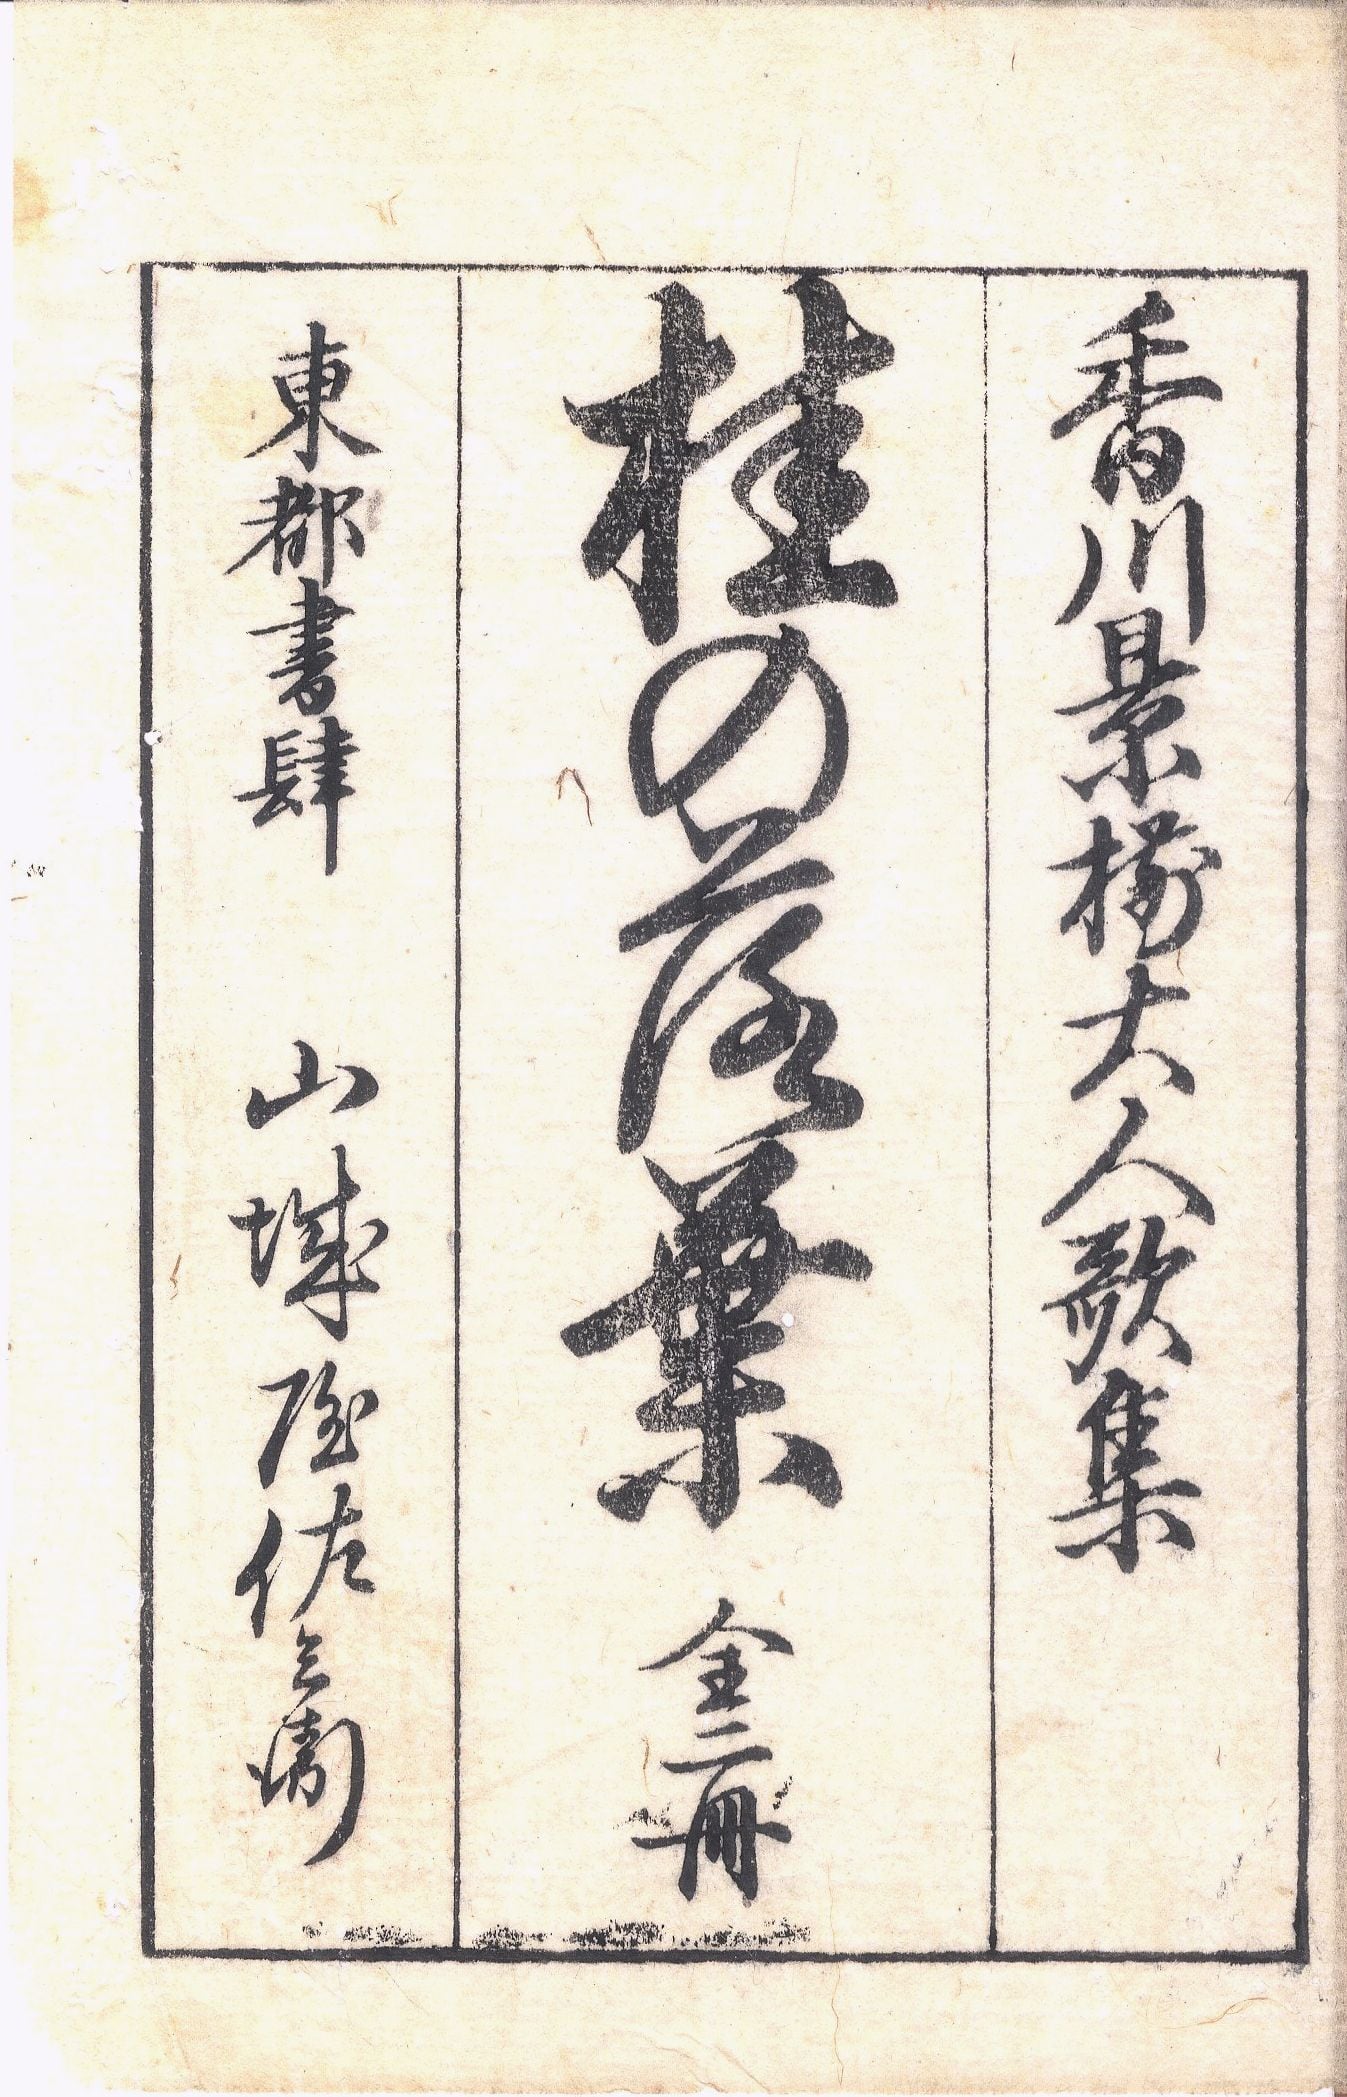 香川景樹大人歌集
桂の落葉 全二冊
東都書肆 山城屋佐兵衛